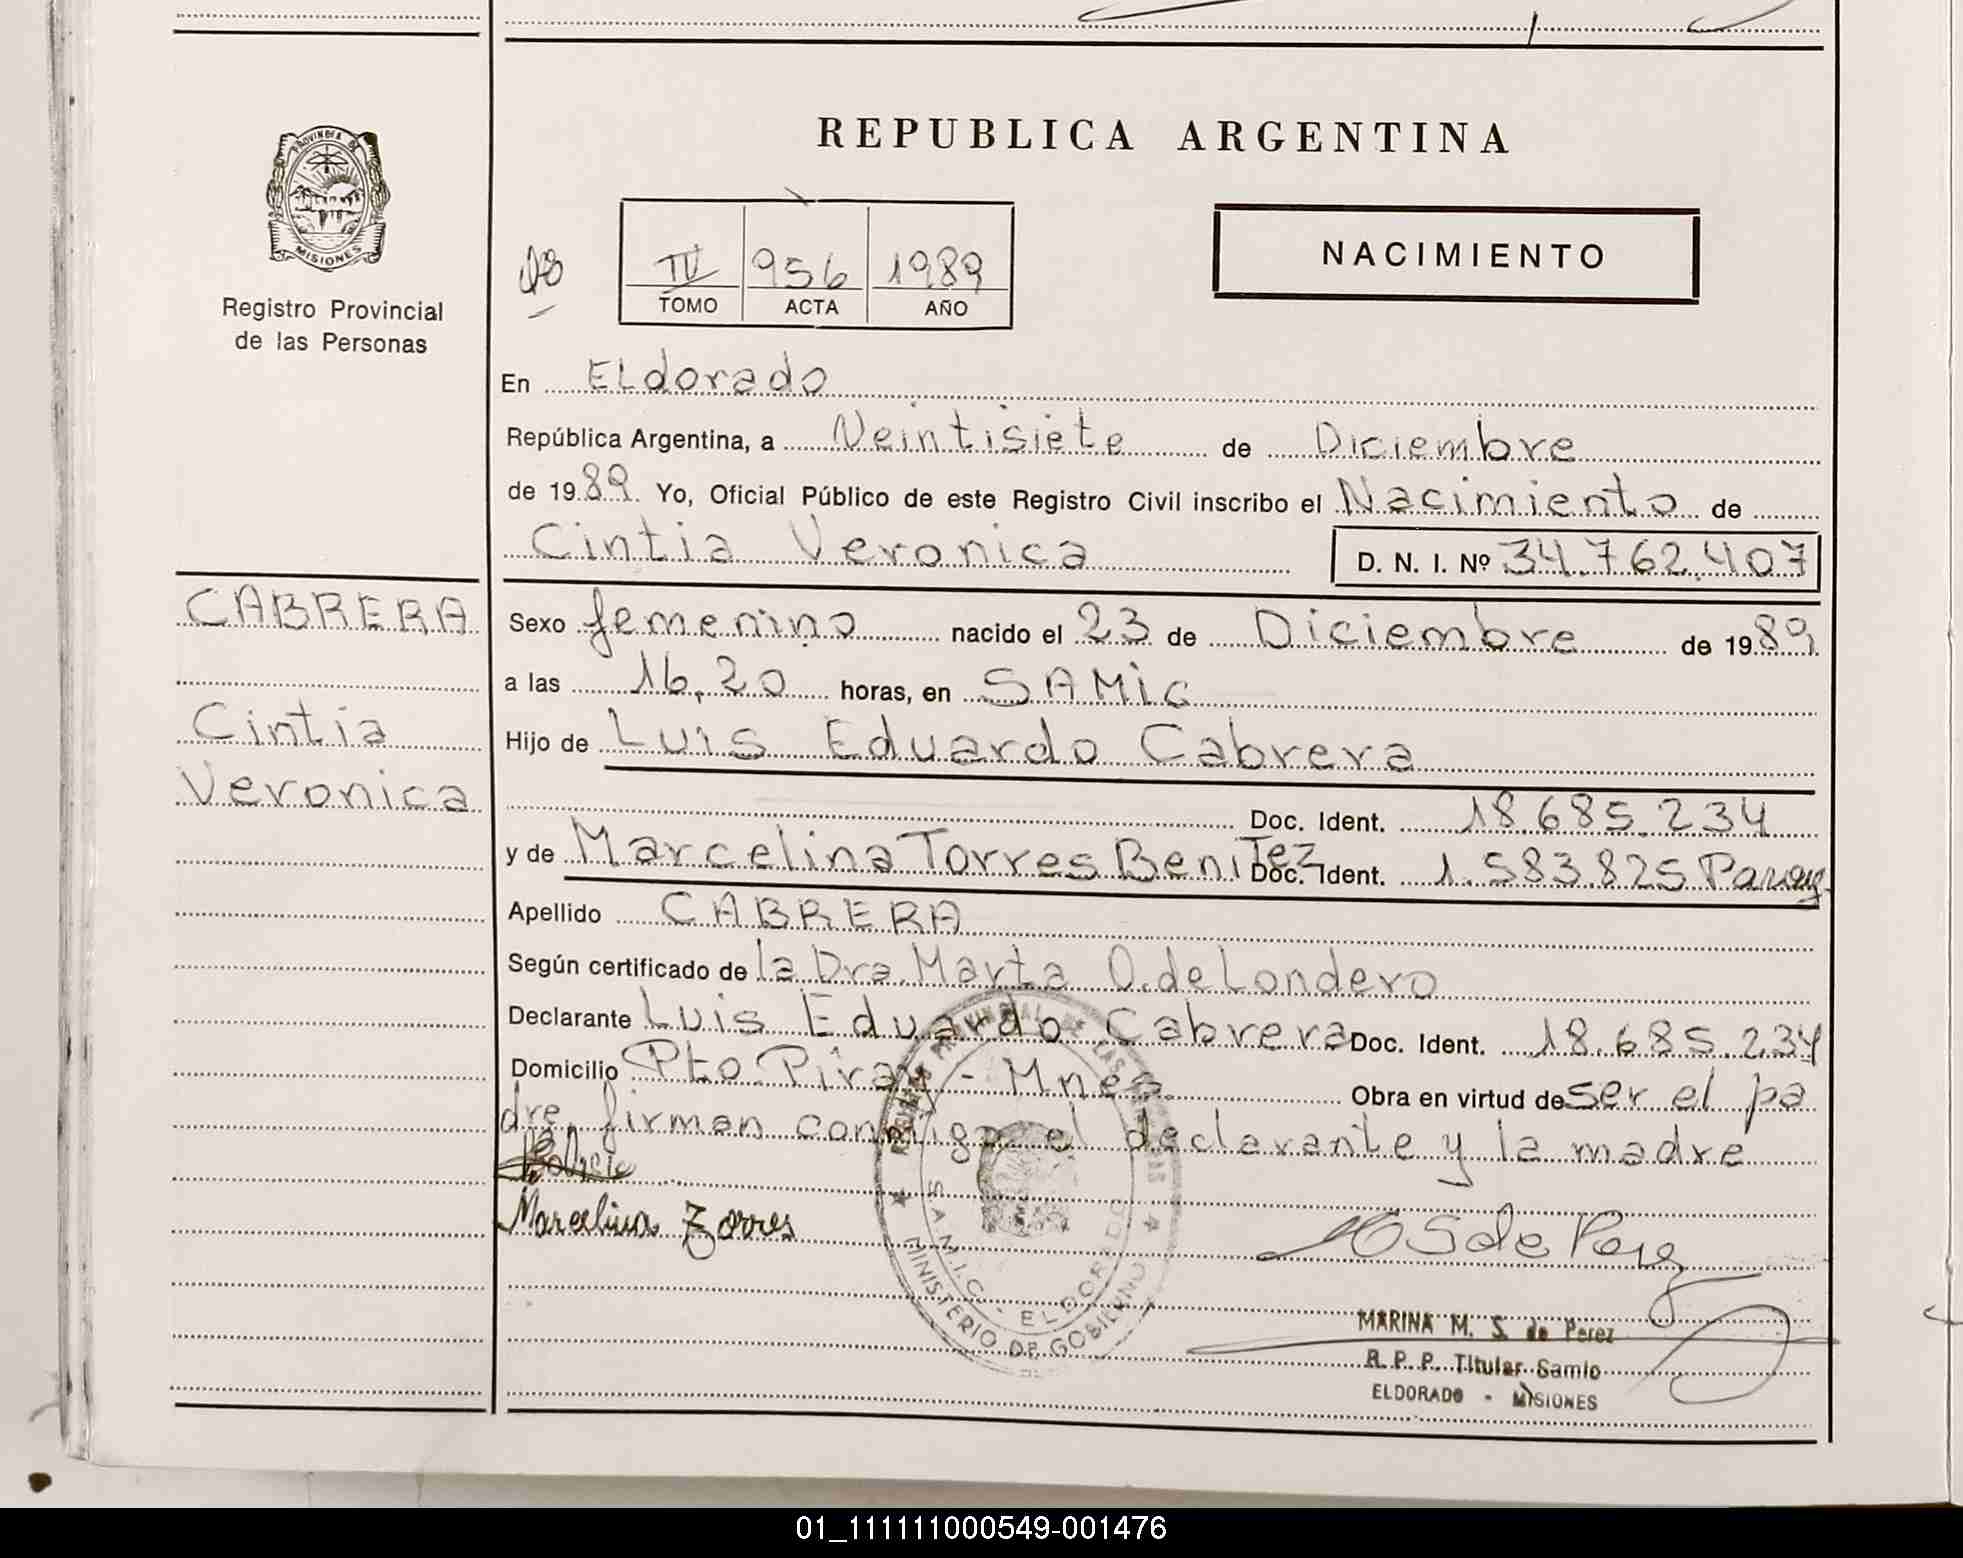 REPUBLICA ARGENTINA
PROVINCIA DE
MISIONES
Registro Provincial
de las Personas
IV 956 1989
TOMO ACTA AÑO
NACIMIENTO
En Eldorado
República Argentina, a Veintisiete de Diciembre
de 1989. Yo, Oficial Público de este Registro Civil inscribo el Nacimiento de
Cintia Veronica D. N. I. Nº 34.762.407
CABRERA
Cintia
Veronica
Sexo femenino nacido el 23 de Diciembre de 1989
a las 16,20 horas, en SAMIC
Hijo de Luis Eduardo Cabrera
Doc. Ident. 18.685.234
y de Marcelina Torres Benitez Doc. Ident. 1.583.825 Parag
Apellido CABRERA
Según certificado de la Dra. Marta O. de Londero
Declarante Luis Eduardo Cabrera Doc. Ident. 18.685.234
Domicilio Pto Piray - Mnes. Obra en virtud de ser el pa
dre, firman conmigo el declarante y la madre
Marcelina Torres
MS de Perez
MINISTERIO DE GOBIERNO
S.A.M.I.C. - ELDORADO
MARINA M. S. de Perez
R. P. P. Titular Samic
ELDORADO - MISIONES
01_111111000549-001476